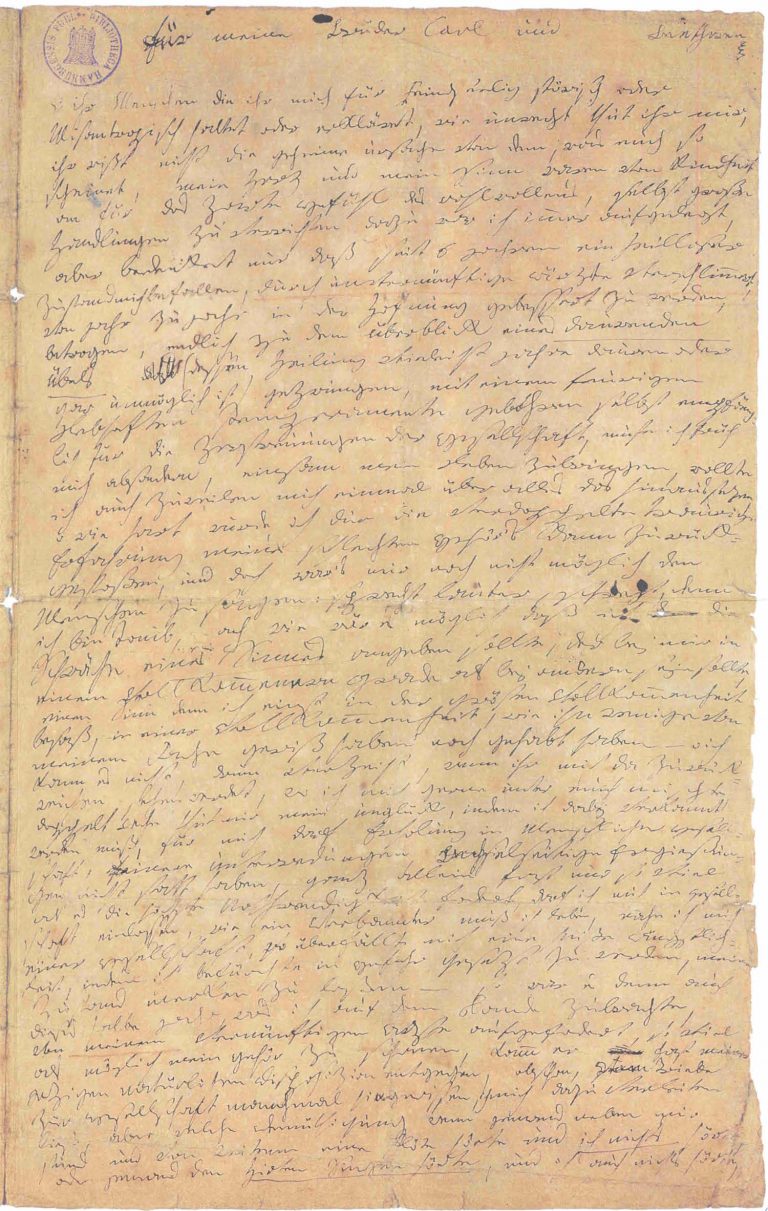 HAMBURGENSIS PUBL. BIBLIOTHECA
für meine Brüder Carl und Beethoven
o ihr Menschen die ihr mich für Feindseelig störisch oder
Misantropisch haltet oder erkläret, wie unrecht thut ihr mir,
ihr wißt nicht die geheime urßache von dem, was euch so
scheinet, mein Herz und mein Sinn waren von Kindheit
an für das Zarte gefühl des wohlwollens, selbst große
Handlungen zu verrichten dazu war ich imer aufgelegt,
aber bedenket nur daß seit 6 jahren ein heilloser
Zustand mich befallen, durch unvernünftige ärzte verschlimert,
von jahr zu jahr in der Hofnung gebessert zu werden,
betrogen, endlich zu dem überblick eines daurenden
übels (dessen Heilung vieleicht jahre dauren oder
gar unmöglich ist) gezwungen, mit einem feurigen
Lebhaften Temperamente gebohren selbst empfäng-
lich für die Zerstreuungen der gesellschaft, muste ich früh
mich absondern, einsam mein Leben zubringen, wollte
ich auch zuweilen mich einmal über alles das hinaussezen,
o wie hart wurde ich dur die verdoppelte traurige
Erfahrung meines schlechten gehör's dann zurück-
gestoßen, und doch war's mir noch nicht möglich den
Menschen zu sagen: sprecht lauter, schreyt, denn
ich bin taub, ach wie wär es möglich daß ich die
Schwäche eines Sinnes angeben sollte, der bey mir in
einem Vollkommenern grade als bey andern seyn sollte,
einen sinn den ich einst in der grösten Vollkomenheit
besaß, in einer Vollkomenheit, wie ihn wenige von
meinem Fache gewiß haben noch gehabt haben – o ich
kann es nicht, drum verzeiht, wenn ihr mich da zurück-
weichen sehen werdet, wo ich mich gerne unter euch mischte
doppelt wehe thut mir mein unglück, indem ich dabey verkannt
werden muß, für mich darf Erholung in Menschlicher gesell-
schaft, feinere unterredungen, wechselseitige Ergießun-
gen nicht statt haben, ganz allein fast nur so viel
als es die höchste Nothwendigkeit fodert, darf ich mich in gesell-
schaft einlassen, wie ein Verbannter muß ich leben, nahe ich mich
einer gesellschaft, so überfällt mich eine heiße ängstlich-
keit, indem ich befürchte in gefahr gesezt zu werden, meinen
Zustand merken zu laßen – so war es denn auch
dieses halbe jahr, was ich auf dem Lande zubrachte,
von meinem vernünftigen Arzte aufgefodert, so viel
als möglich mein gehör zu schonen, kam er fast meiner
jezigen natürlichen Disposizion entgegen, obschon, vom Triebe
zur gesellschaft manchmal hingerissen, ich mich dazu verleiten
ließ, aber welche Demüthigung wenn jemand neben mir
stund und von weitem eine flöte hörte und ich nichts hörte,
oder jemand den Hirten Singen hörte, und ich auch nichts hörte,